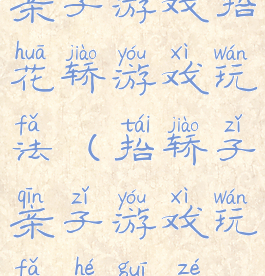 亲子游戏抬
huā jiào yóu xì wán
花轿游戏玩
fǎ tái jiào zǐ
法（抬轿子
qīn zǐ yóu xì wán
亲子游戏玩
fǎ hé guī zé